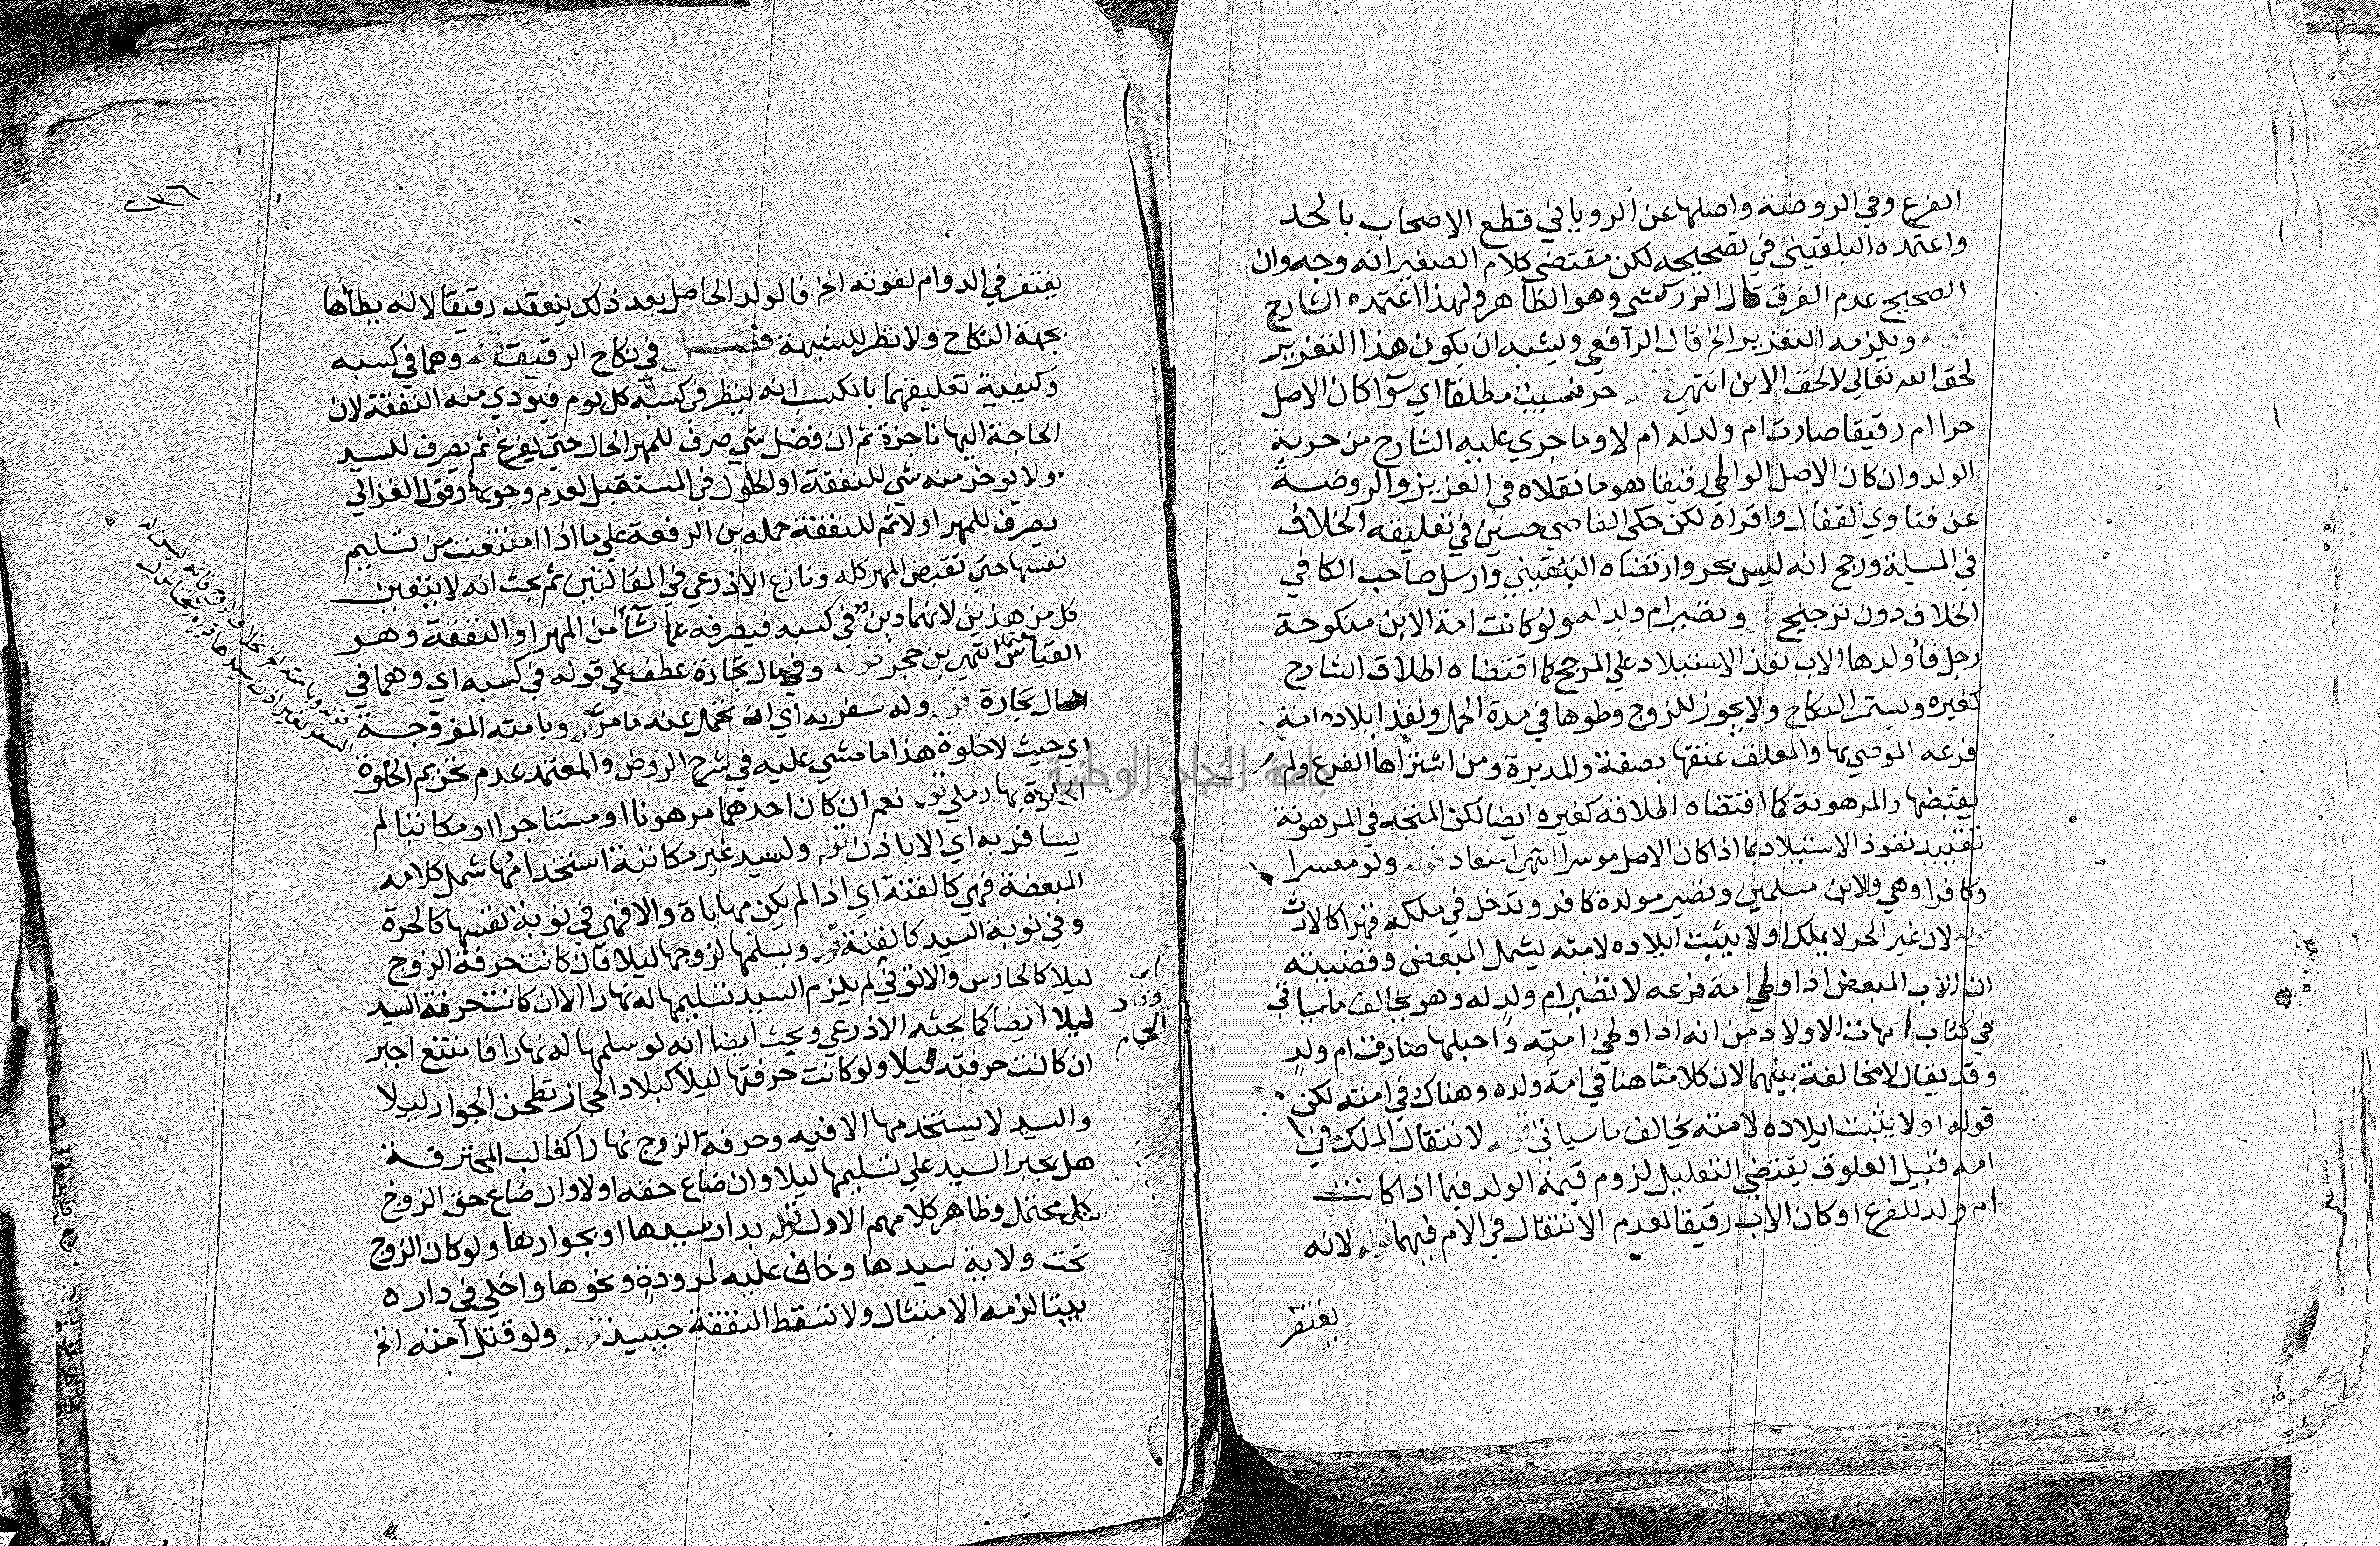 الفرع وفي الروضة واصلها عن الروياني قطع الاصحاب بالحد
واعتمده البلقيني في تصحيحه لكن مقتضى كلام الصغير انه وجه وان
الصحيح عدم الفرق قال الزركشي وهو الظاهر ولهذا اعتمده الشارح
قوله ويلزمه التعزير الخ قال الرافعي ويشبه ان يكون هذا التعزير
لحق الله تعالي لا لحق الابن انتهي قوله حر نسيب مطلقا اي سوآ كان الاصل
حرا ام رقيقا صارت ام ولد له ام لا وما جري عليه الشارح من حرية
الولد وان كان الاصل الواطي رقيقا هو ما نقلاه في العزيز والروضة
عن فتاوي القفال واقراه لكن حكي القاضي حسين في تعليقه الخلاف
في المسيلة ورجح انه ليس بحر وارتضاه البلقيني وارسل صاحب الكافي
الخلاف دون ترجيح قوله وتصير ام ولد له ولو كانت امة الابن منكوحة
رجل فأولدها الاب نفذ الاستيلاد علي المرجح كما اقتضاه اطلاق الشارح
كغيره ويستمر النكاح ولا يجوز للزوج وطوها في مدة الحمل ونفذ ايلاده امة
فرعه الموصي بها والمعلق عتقها بصفة والمدبرة ومن اشتراها الفرع ولم
يقبضها والمرهونة كما اقتضاه اطلاقه كغيره ايضا لكن المتجه في المرهونة
تقييد نفوذ الاستيلاد بما اذا كان الاصل موسرا انتهي اسعاد قوله ولو معسرا
وكافرا وهي والابن مسلمين وتصير مولدة كافر وتدخل في ملكه قهرا كالارث
قوله لان غير الحر لا يملك او لا يثبت ايلاده لامته يشمل المبعض وقضيته
ان الاب المبعض اذا وطي امة فرعه لا تصير ام ولد له وهو يخالف ما سياتي
في كتاب امهات الاولاد من انه اذا وطي امته واحبلها صارت ام ولد
وقد يقال لا مخالفة بينهما لان كلامنا هنا في امة ولده وهناك في امته لكن
قوله او لا يثبت ايلاده لامته يخالف ما سياتي قوله لانتقال الملك في
امه قبيل العلوق يقتضي التعليل لزوم قيمة الولد فيما اذا كانت
ام ولد للفرع او كان الاب رقيقا لعدم الانتقال في الام فيهما قوله لانه
يغتفر
٢٣٦
يغتفر في الدوام لقوته الخ فالولد الحاصل بعد ذلك ينعقد رقيقا لانه يطأها
بجهة النكاح ولا نظر للشبهة فصل في نكاح الرقيق قوله وهما في كسبه
وكيفية تعليقهما بالكسب انه ينظر في كسبه كل يوم فيودي منه النفقة لان
الحاجة اليها ناجزة ثم ان فضل شي صرف للمهر الحال حتي يفرغ ثم يصرف للسيد
ولا يوخذ منه شي للنفقة او الحلول في المستقبل لعدم وجوبها وقول الغزالي
يصرف للمهر اولا ثم للنفقة حمله بن الرفعة علي ما اذا امتنعت من تسليم
نفسها حتي تقبض المهر كله ونازع الاذرعي في المقالتين ثم بحث انه لا يتعين
كل من هذين لانهما دين في كسبه فيصرفه عما شآء من المهر او النفقة وهو
القياس انتهي بن حجر قوله وفي مال تجارة عطف علي قوله في كسبه اي وهما في
مال تجارة قوله وله سفر به اي ان تحمل عنه ما مر قوله وبامته المزوجة
اي حيث لا خلوة هذا ما مشي عليه في شرح الروض والمعتمد عدم تحريم الخلوة
بها رملي قوله نعم ان كان احدهما مرهونا او مستاجرا او مكاتبا لم
يسافر به اي الا باذن قوله ولسيد غير مكاتبة استخدامها شمل كلامه
المبعضة فهي كالقنة اي اذا لم يكن مهاياة والا فهي في نوبة نفسها كالحرة
وفي نوبة السيد كالقنة قوله ويسلمها لزوجها ليلا فان كانت حرفة الزوج
ليلا كالحارس والاتوني لم يلزم السيد تسليمها له نهارا الا ان كانت حرفة السيد
ليلا ايضا كما بحثه الاذرعي وبحث ايضا انه لو سلمها له نهارا فامتنع اجبر
ان كانت حرفته ليلا ولو كانت حرفتها ليلا كبلاد الحجاز تطحن الجوار ليلا
والسيد لا يستخدمها الا فيه وحرفة الزوج نهارا كغالب المحترفة
هل يجبر السيد علي تسليمها ليلا وان ضاع حقه اولا وان ضاع حق الزوج
كل محتمل وظاهر كلامهم الاول قوله بدار سيدها او بجوارها ولو كان الزوج
تحت ولاية سيدها وخاف عليه لمرودة ونحوها واخلي في داره
بيتا لزمه الامتثال ولا تسقط النفقة حينيذ قوله ولو قتل امته الخ
وقاد
الحمام
جامعة النجاح الوطنية